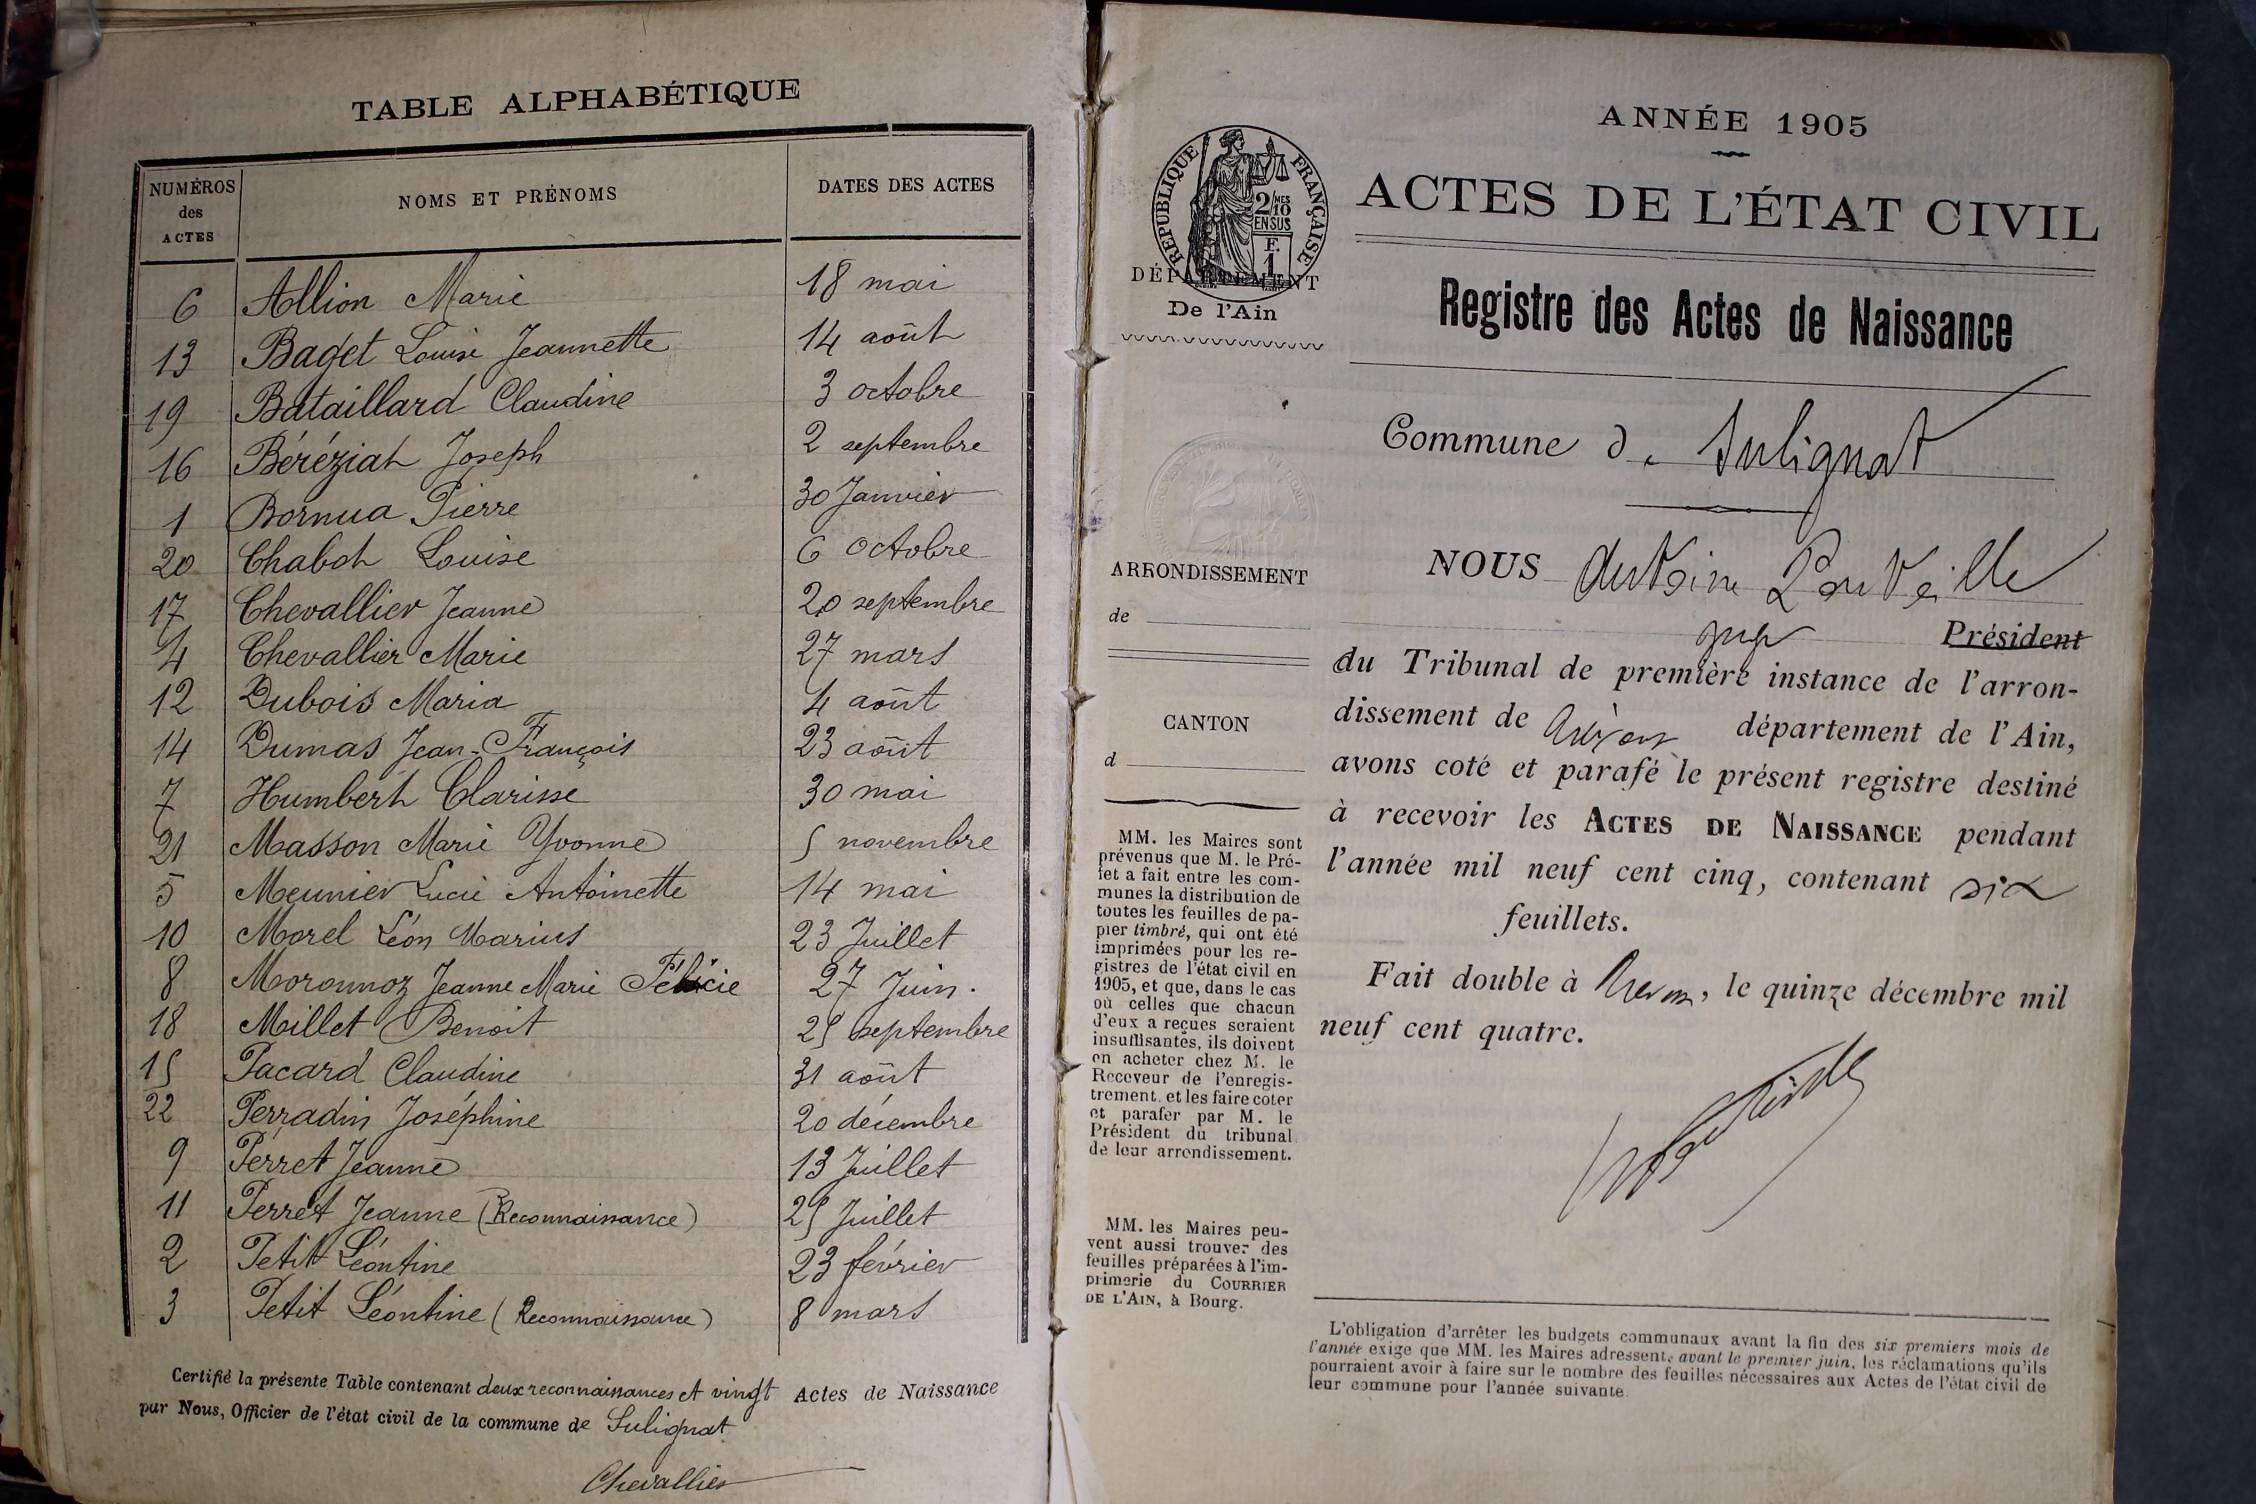 TABLE ALPHABÉTIQUE
NUMÉROS des ACTES NOMS ET PRÉNOMS DATES DES ACTES
6 Allion Marie 18 mai
13 Baget Louise Jeannette 14 août
19 Bataillard Claudine 3 octobre
16 Béréziat Joseph 2 septembre
1 Bornua Pierre 30 Janvier
20 Chabot Louise 6 octobre
17 Chevallier Jeanne 20 septembre
4 Chevallier Marie 27 mars
12 Dubois Maria 4 août
14 Dumas Jean-François 23 août
7 Humbert Clarisse 30 mai
21 Masson Marie Yvonne 5 novembre
5 Meunier Lucie Antoinette 14 mai
10 Morel Léon Marius 23 Juillet
8 Moronnoz Jeanne Marie Félicie 27 Juin.
18 Millet Benoit 25 septembre
15 Pacard Claudine 31 août
22 Perradin Joséphine 20 décembre
9 Perret Jeanne 13 Juillet
11 Perret Jeanne (Reconnaissance) 25 Juillet
2 Petit Léontine 23 février
3 Petit Léontine (Reconnaissance) 8 mars
Certifié la présente Table contenant deux reconnaissances et vingt Actes de Naissance
par Nous, Officier de l'état civil de la commune de Sulignat
Chevallier
ANNÉE 1905
ACTES DE L'ÉTAT CIVIL
RÉPUBLIQUE FRANÇAISE
2/10 MES
EN SUS
F.
1
DÉPARTEMENT
De l'Ain
Registre des Actes de Naissance
Commune de Sulignat
ARRONDISSEMENT
de
CANTON
d
MM. les Maires sont
prévenus que M. le Pré-
fet a fait entre les com-
munes la distribution de
toutes les feuilles de pa-
pier timbré, qui ont été
imprimées pour les re-
gistres de l'état civil en
1905, et que, dans le cas
où celles que chacun
d'eux a reçues seraient
insuffisantes, ils doivent
en acheter chez M. le
Receveur de l'enregis-
trement, et les faire coter
et parafer par M. le
Président du tribunal
de leur arrondissement.
MM. les Maires peu-
vent aussi trouver des
feuilles préparées à l'im-
primerie du COURRIER
DE L'AIN, à Bourg.
NOUS Antoine
juge Président
du Tribunal de première instance de l'arron-
dissement de Trévoux département de l'Ain,
avons coté et parafé le présent registre destiné
à recevoir les ACTES DE NAISSANCE pendant
l'année mil neuf cent cinq, contenant six
feuillets.
Fait double à Trévoux, le quinze décembre mil
neuf cent quatre.
L'obligation d'arrêter les budgets communaux avant la fin des six premiers mois de
l'année exige que MM. les Maires adressent, avant le premier juin, les réclamations qu'ils
pourraient avoir à faire sur le nombre des feuilles nécessaires aux Actes de l'état civil de
leur commune pour l'année suivante.